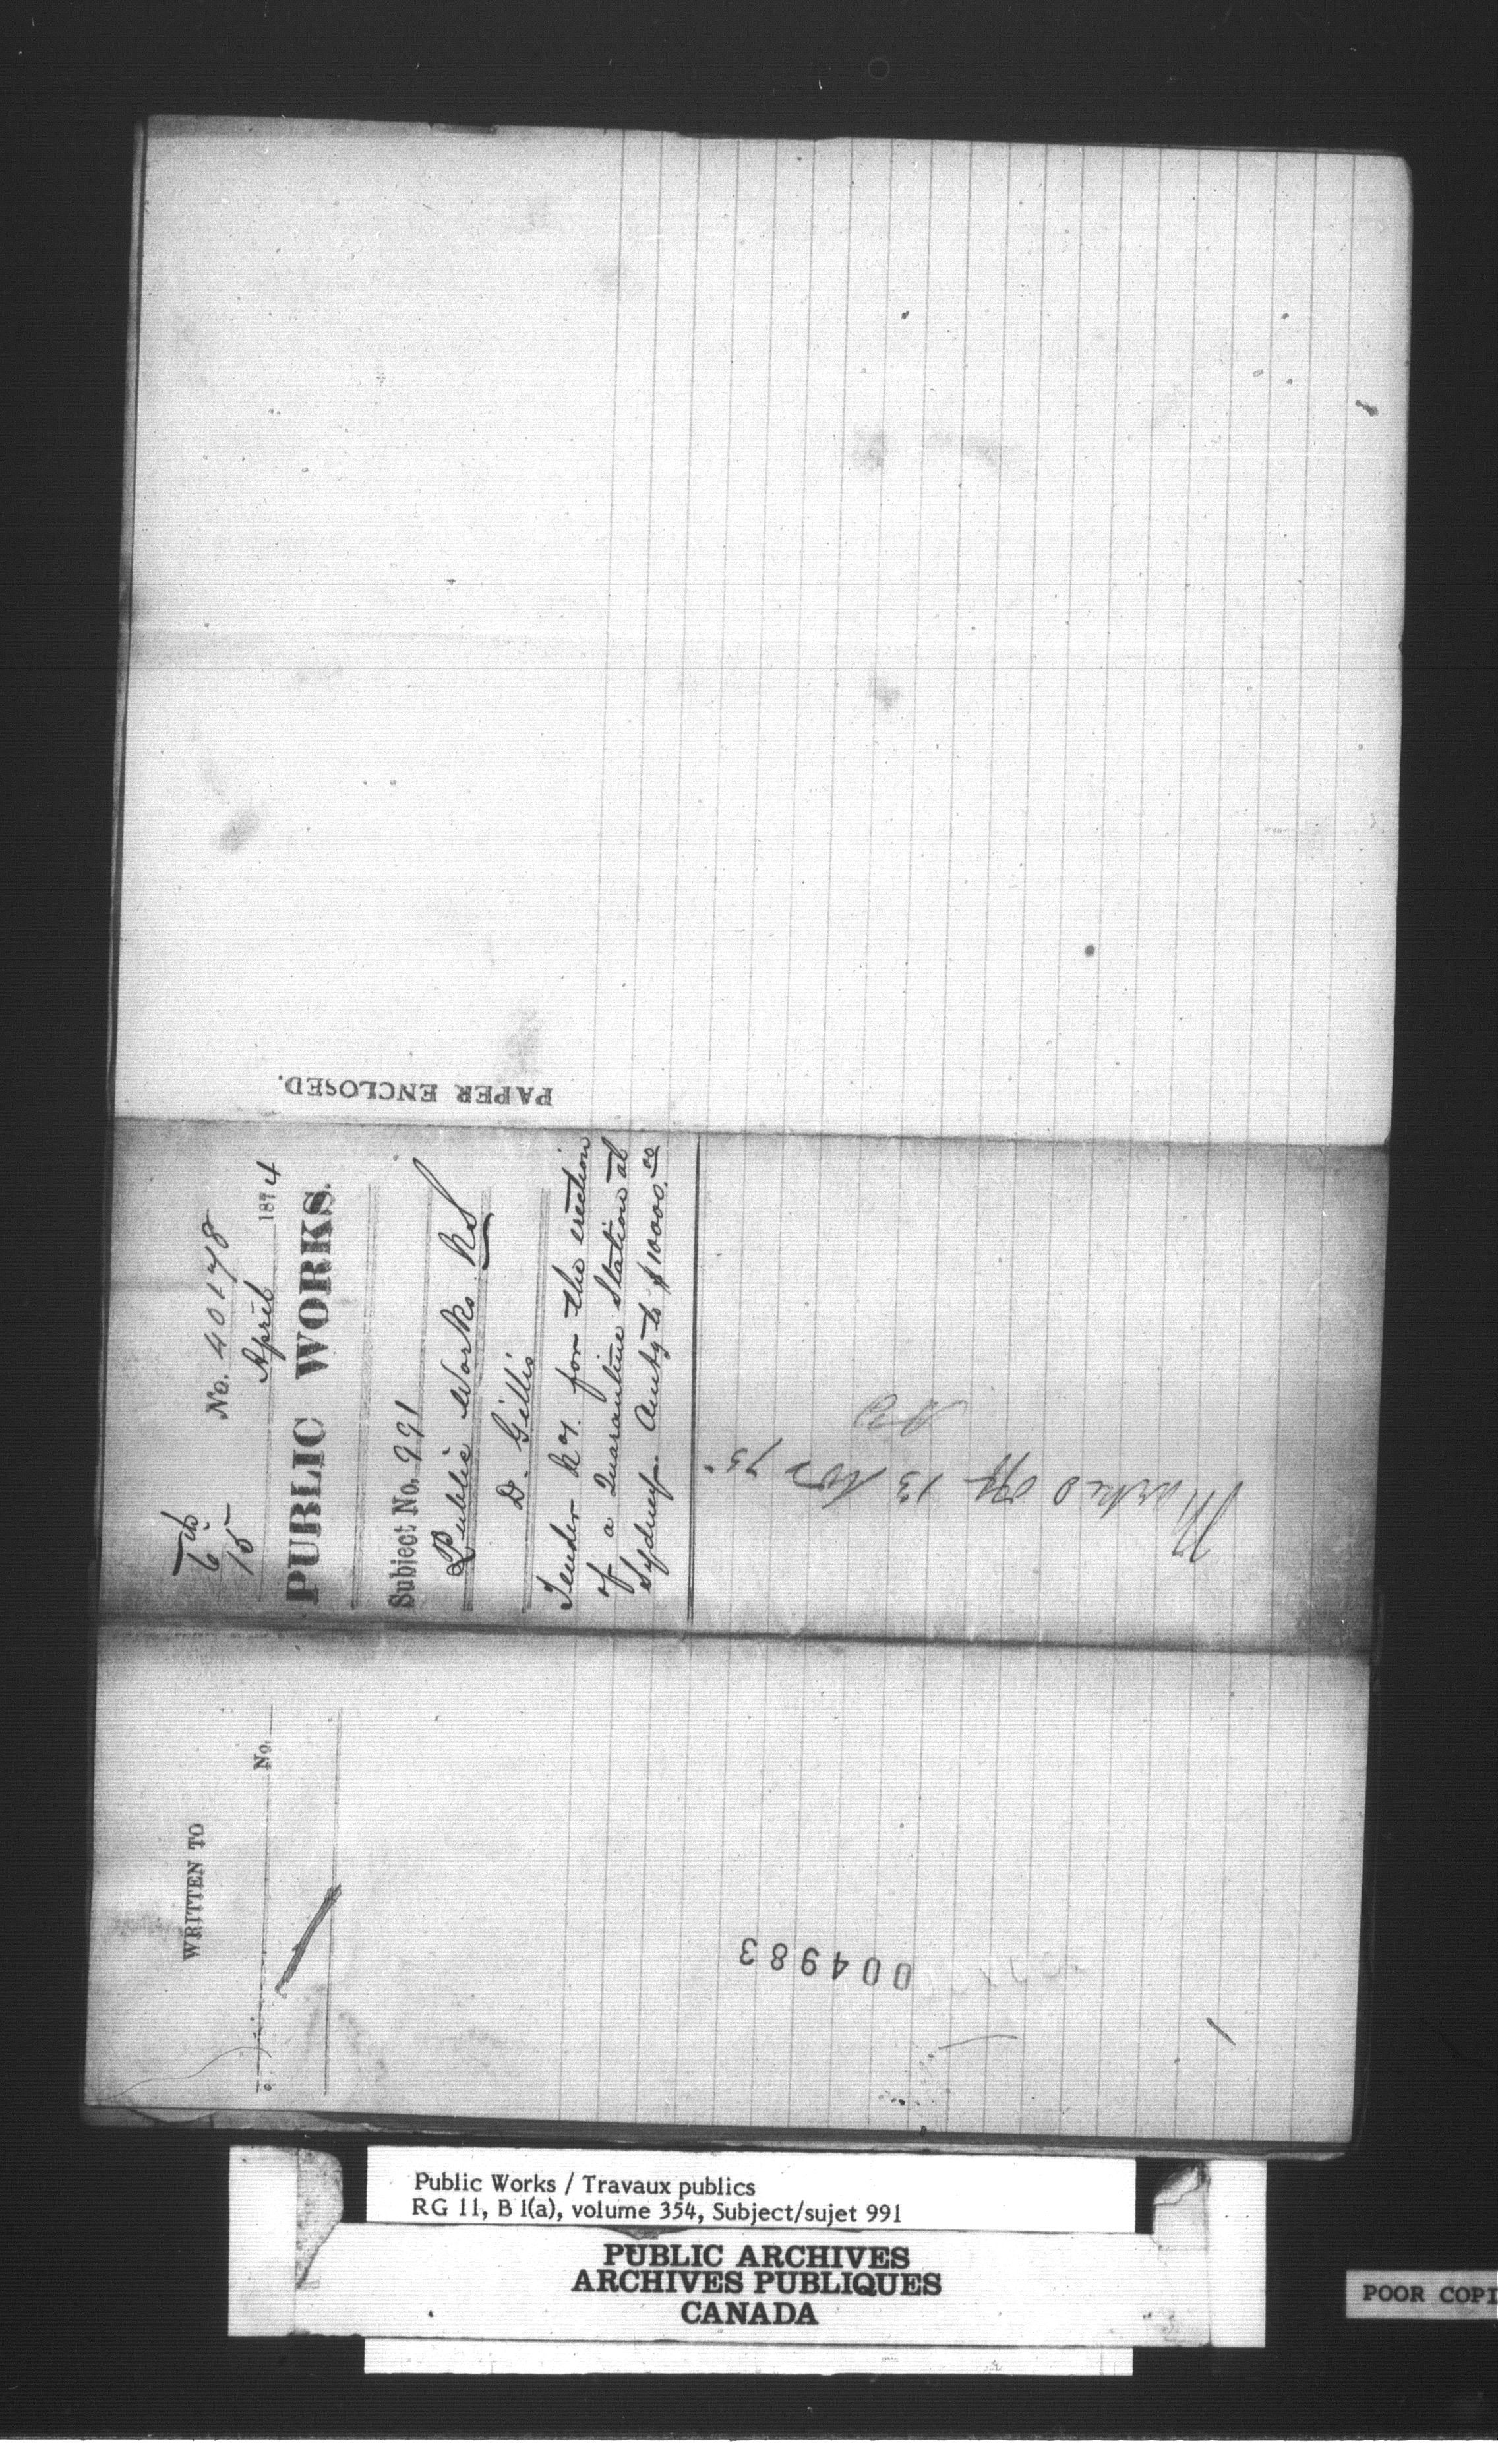 PAPER ENCLOSED.
6th
15
No. 40178
April 1874
PUBLIC WORKS.
Subject No. 991
Public Works
D. Gillis
Tender for the erection
of a Quarantine Station at
Sydney. Amtg to $10000.00
Marked off 13 Nov 75.
WRITTEN TO
No.
004983
Public Works / Travaux publics
RG 11, B 1(a), volume 354, Subject/sujet 991
PUBLIC ARCHIVES
ARCHIVES PUBLIQUES
CANADA
POOR COPI